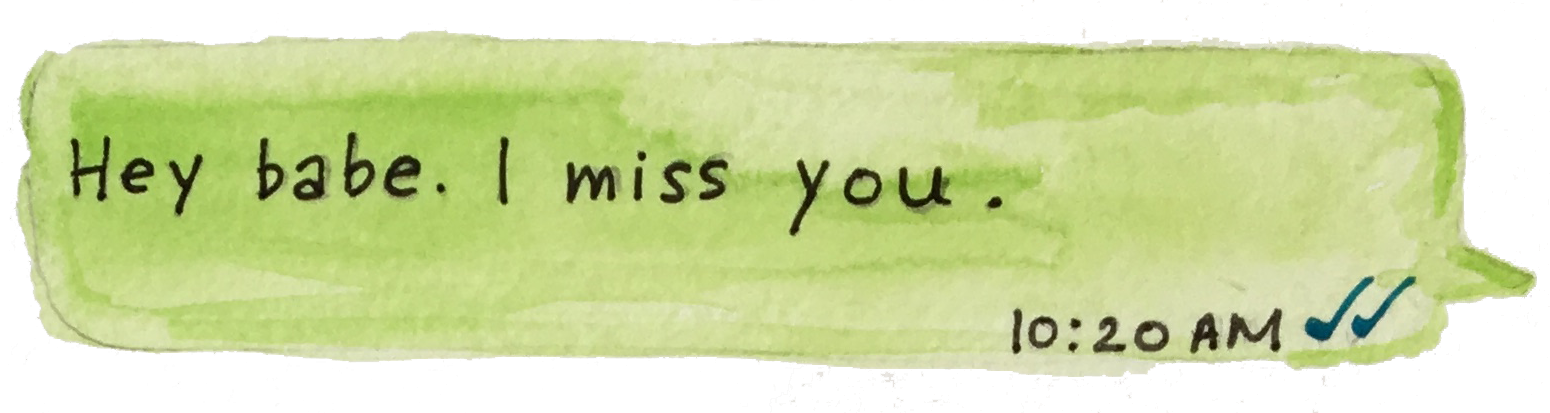 Hey babe. I miss you.
10:20 AM